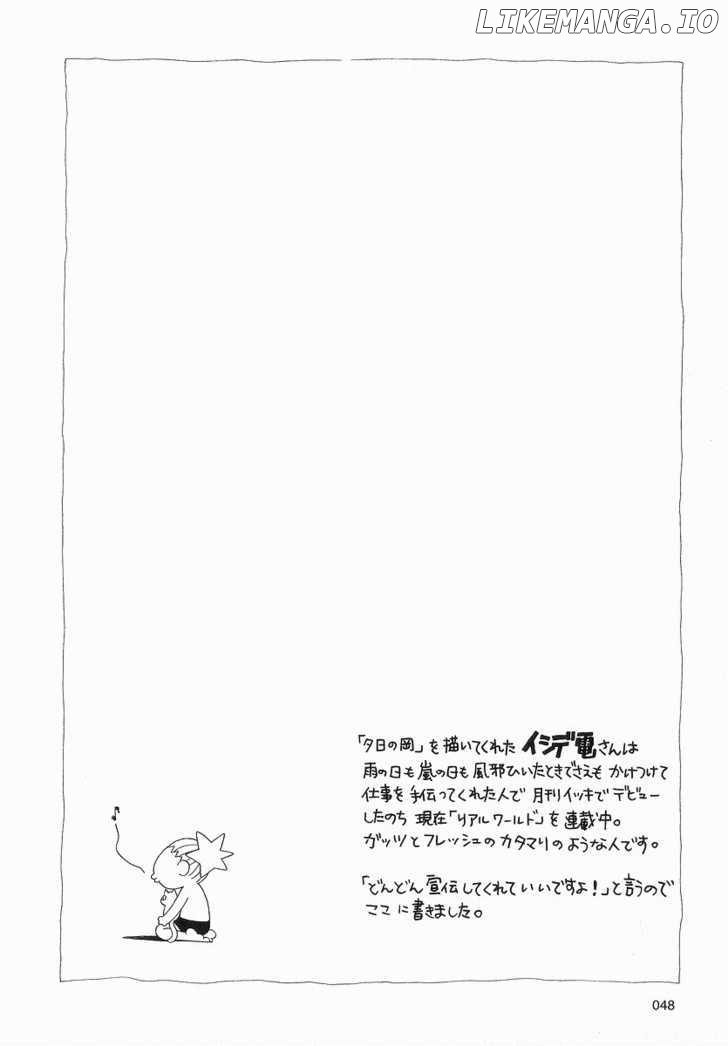 LIKEMANGA.IO
「夕日の岡」を描いてくれた イシデ電さんは
雨の日も嵐の日も風邪ひいたときでさえも かけつけて
仕事を手伝ってくれた人で 月刊イッキでデビュー
したのち 現在「リアルワールド」を連載中。
ガッツとフレッシュのカタマリのような人です。
「どんどん宣伝してくれていいですよ！」と言うので
ここに書きました。
048